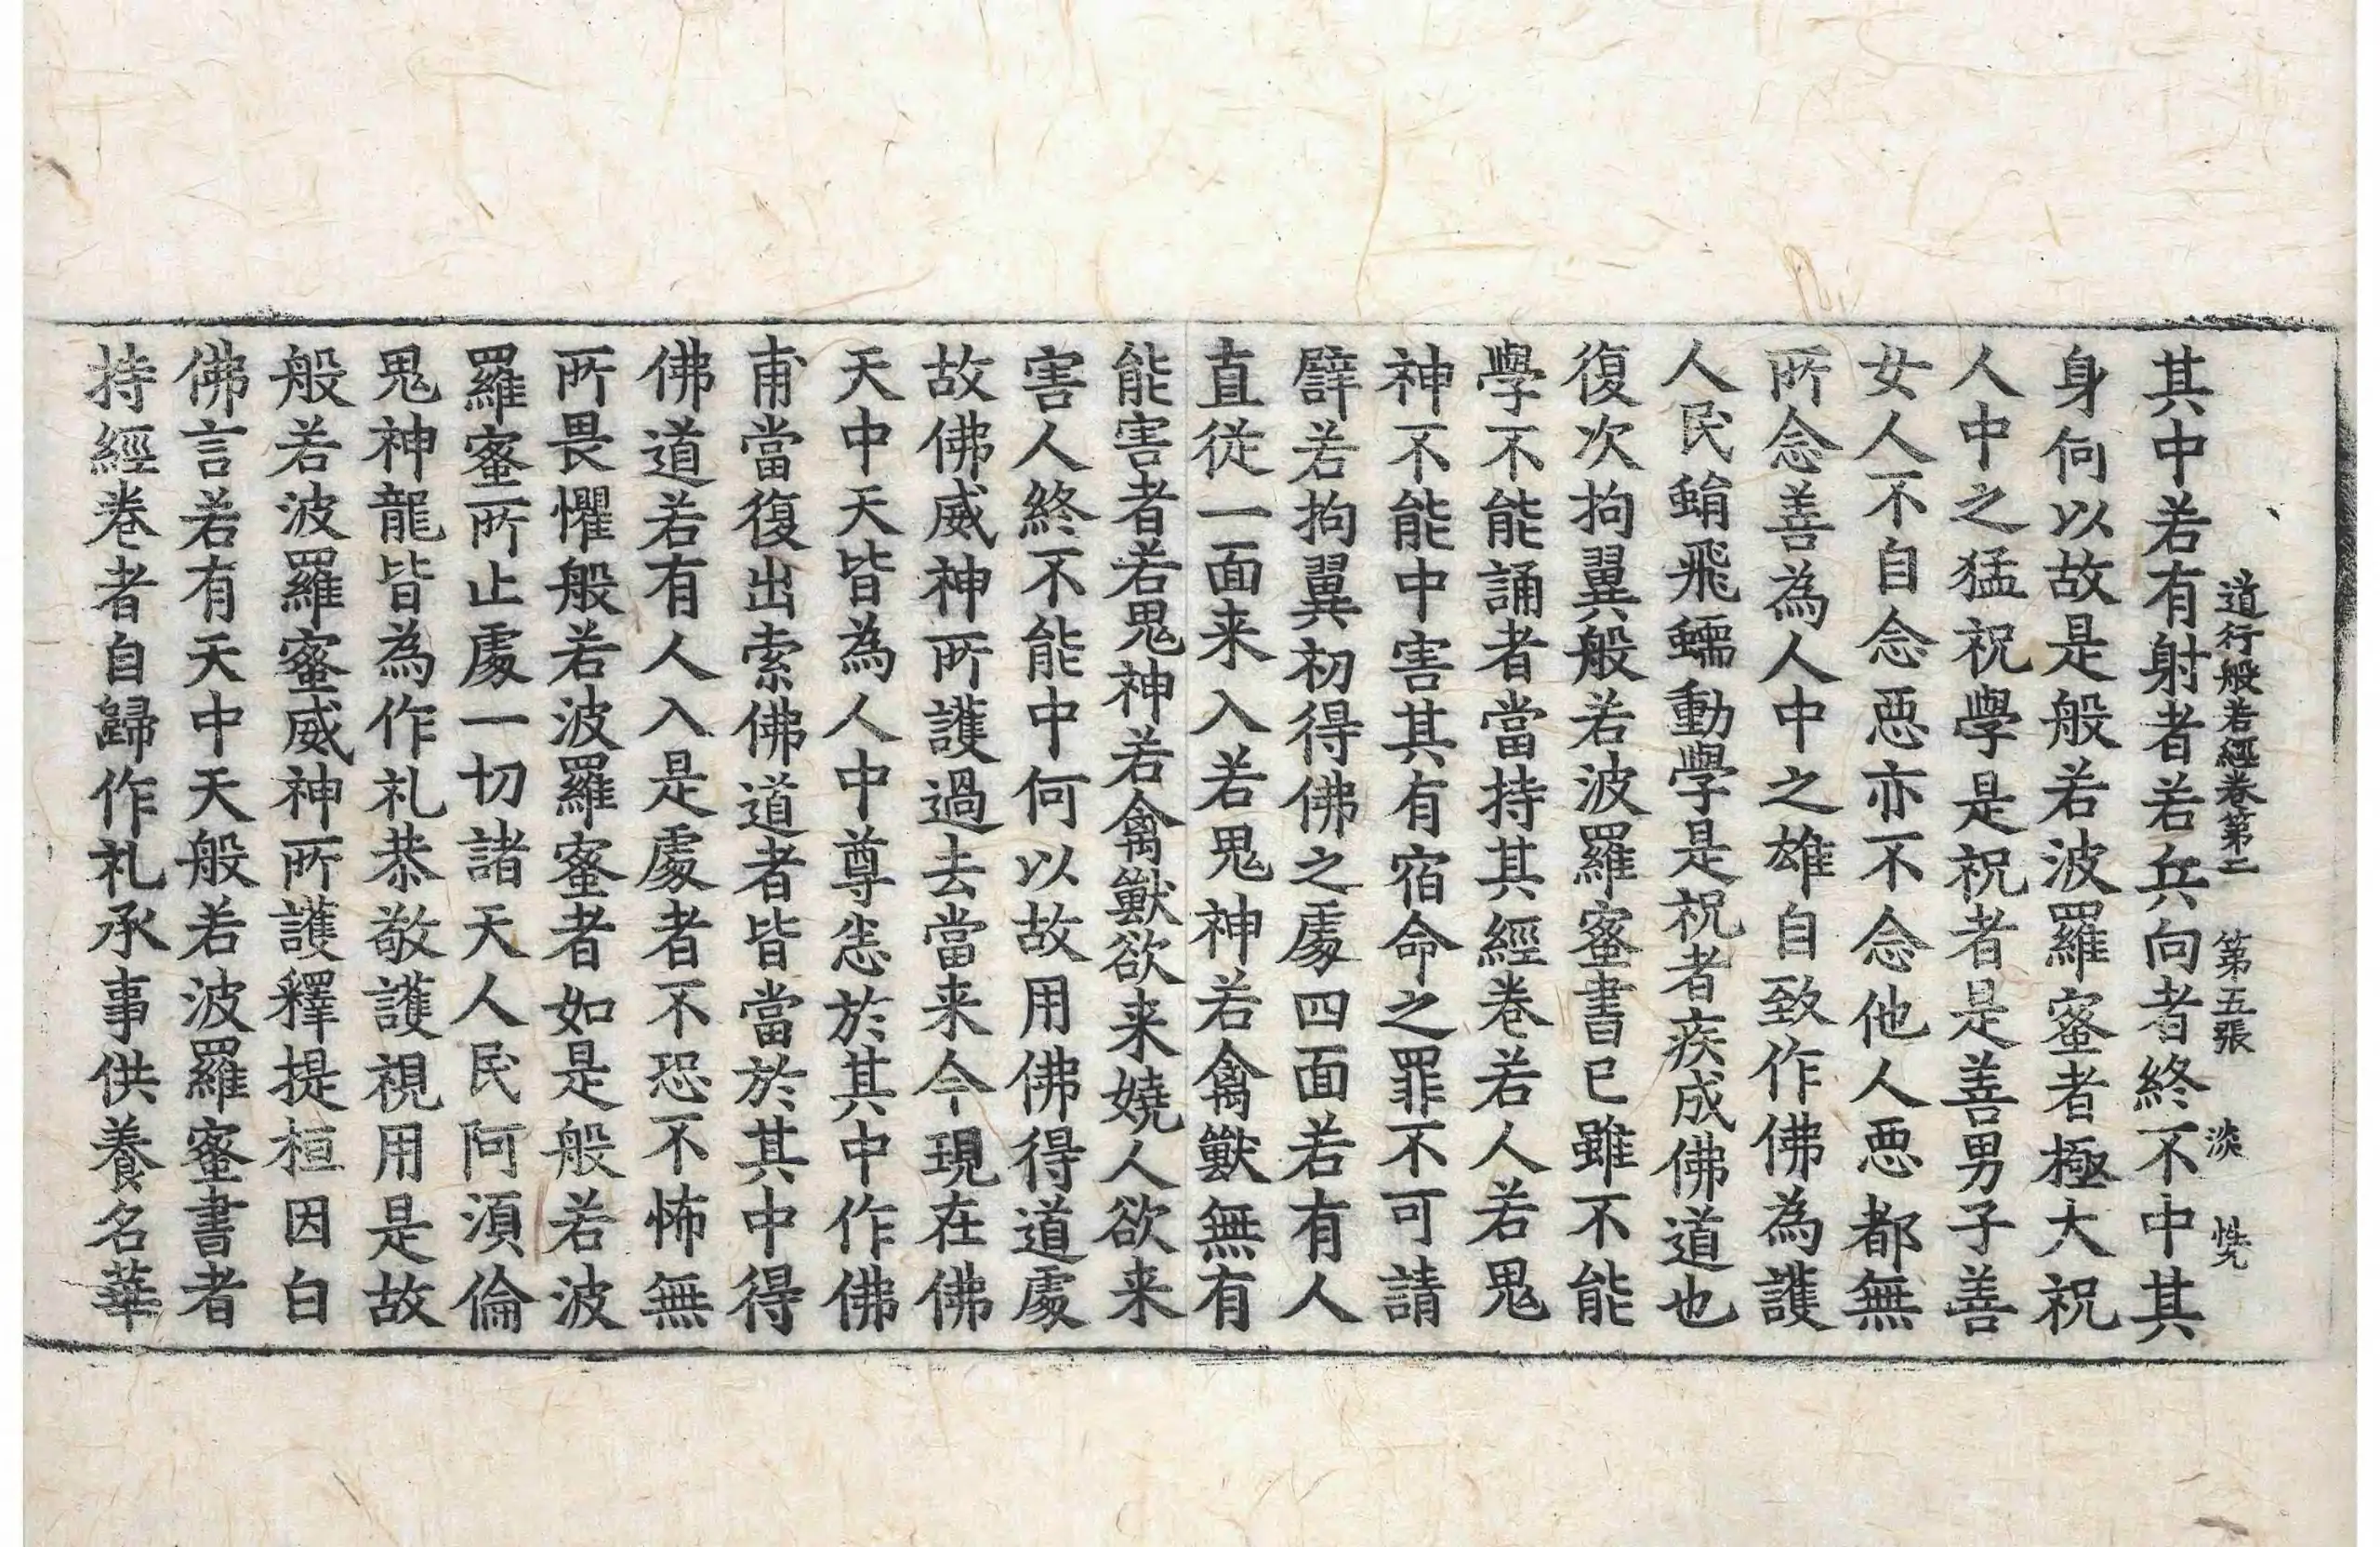 道行般若經卷第二 第五張 淡
其中若有射者若兵向者終不中其
身何以故是般若波羅蜜者極大祝
人中之猛祝學是祝者是善男子善
女人不自念惡亦不念他人惡都無
所念善為人中之雄自致作佛為護
人民蜎飛蠕動學是祝者疾成佛道也
復次拘翼般若波羅蜜書已雖不能
學不能誦者當持其經卷若人若鬼
神不能中害其有宿命之罪不可請
譬若拘翼初得佛之處四面若有人
直從一面来入若鬼神若禽獸無有
能害者若鬼神若禽獸欲来嬈人欲来
害人終不能中何以故用佛得道處
故佛威神所護過去當来今現在佛
天中天皆為人中尊恙於其中作佛
甫當復出索佛道者皆當於其中得
佛道若有人入是處者不恐不怖無
所畏懼般若波羅蜜者如是般若波
羅蜜所止處一切諸天人民阿須倫
鬼神龍皆為作礼恭敬護視用是故
般若波羅蜜威神所護釋提桓因白
佛言若有天中天般若波羅蜜書者
持經卷者自歸作礼承事供養名華